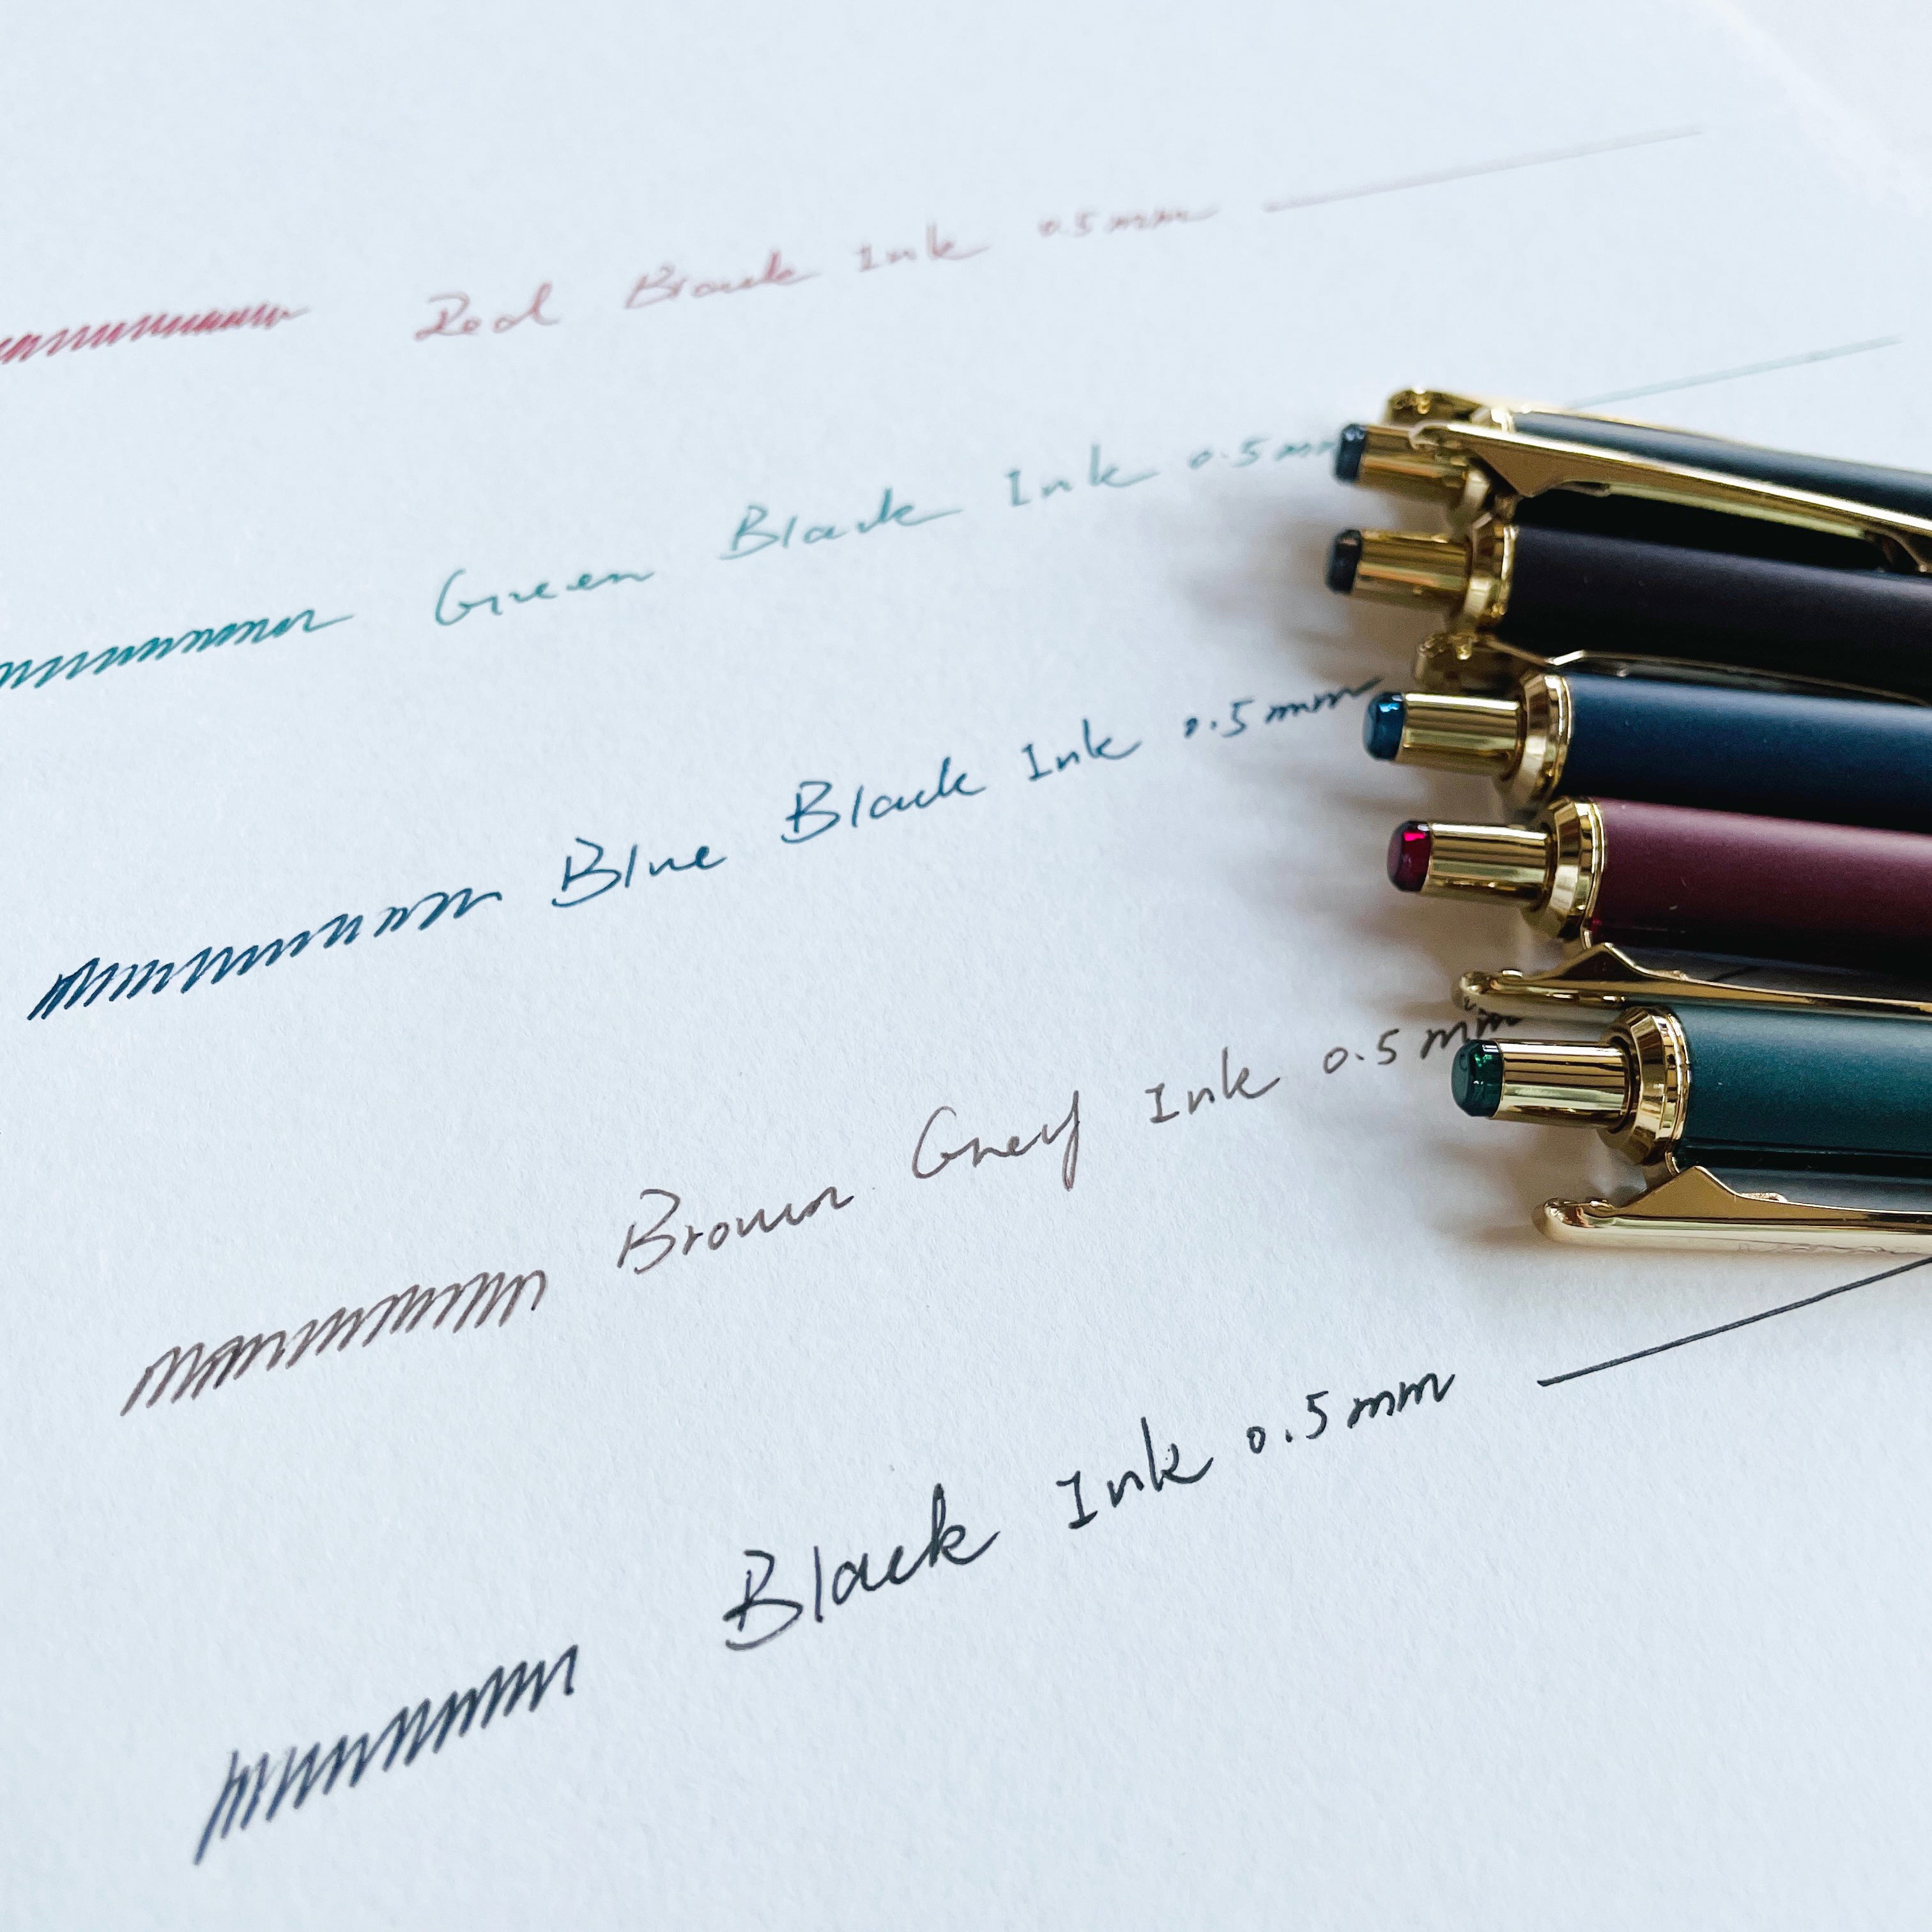 Red Black Ink 0.5mm
Green Black Ink 0.5mm
Blue Black Ink 0.5mm
Brown Grey Ink 0.5mm
Black Ink 0.5mm